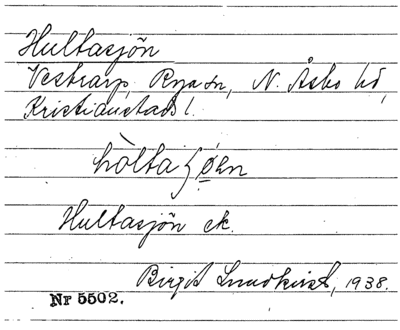 Hultasjön
Vestrarp, Rya sn, N. Åsbo hd,
Kristianstads l.
hòlta ʃǿn
Hultasjön ek.
Birgit Lundkvist, 1938.
Nr 5502.